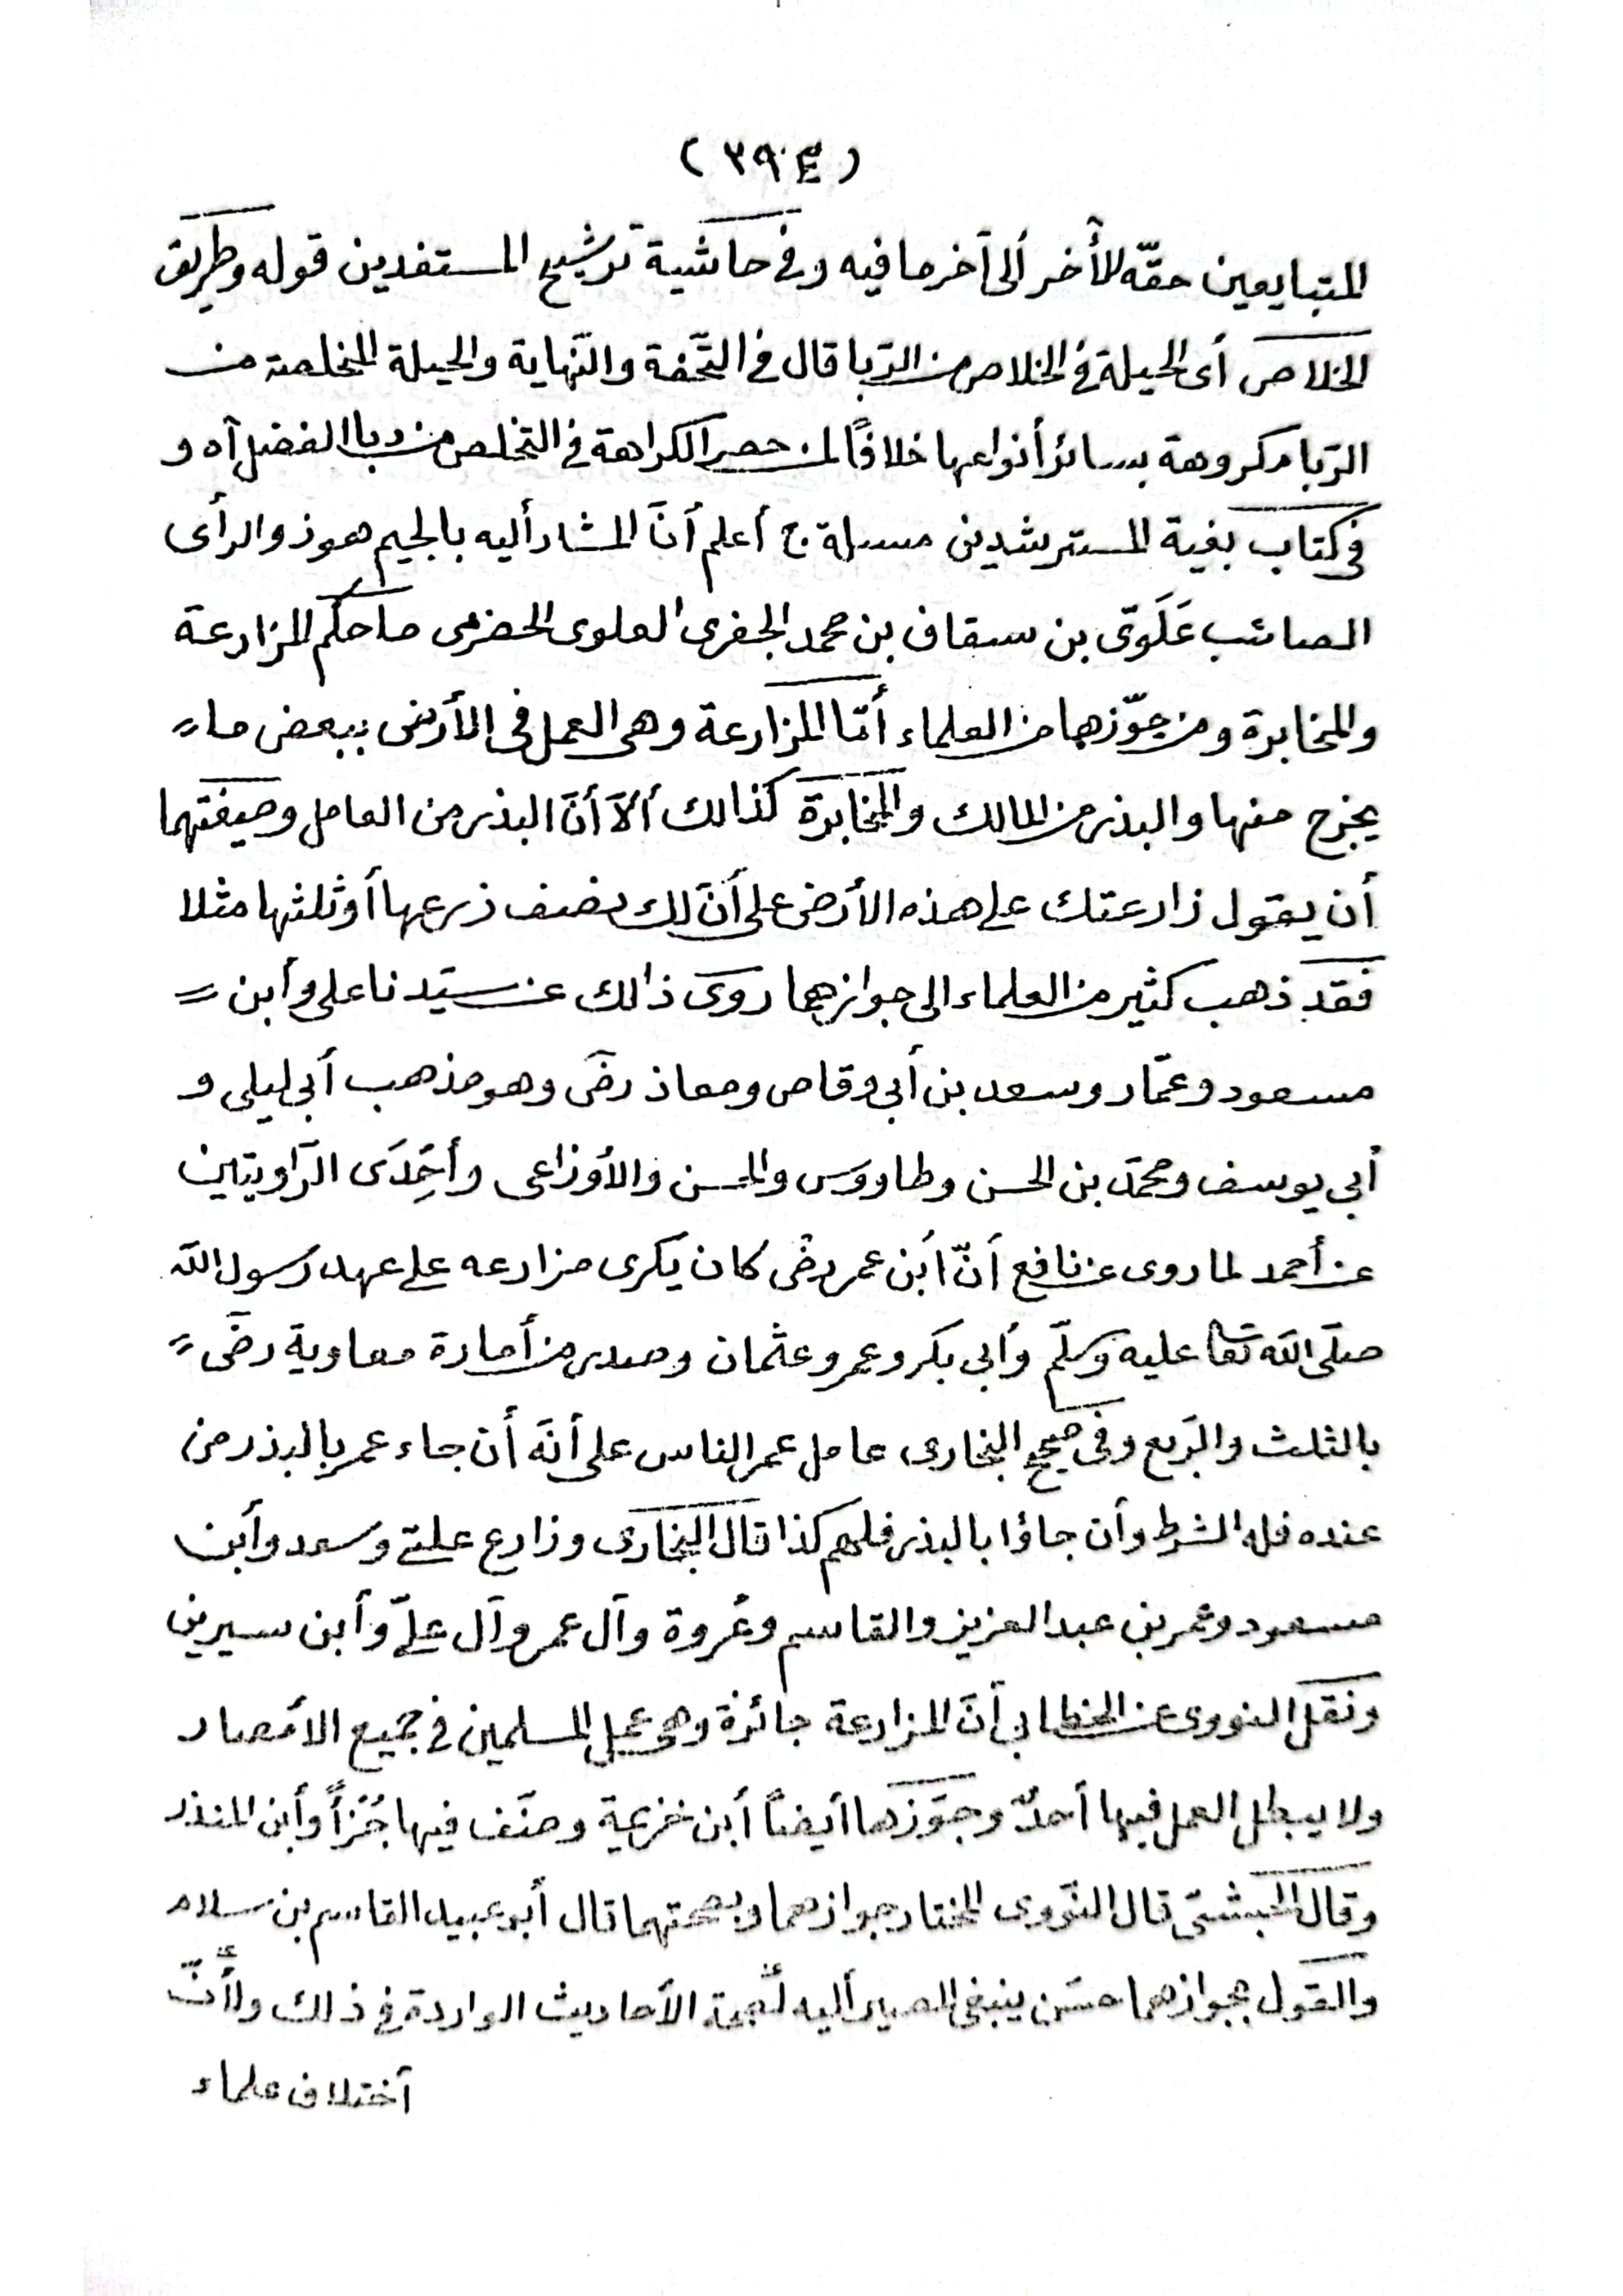 (٣٩٤)
المتبايعين حقّه للأخر ألى آخر ما فيه وفى حاشية ترشيح المستفدين قوله وطريق
الخلاص أى الحيلة فى الخلاص من الرّبا قال فى التّحفة والنّهاية والحيلة المخلصة من
الرّبا مكروهة بسائر أنواعها خلافًا لمن حصر الكراهة فى التخلص من ربا الفضل آه و
فى كتاب بغية المسترشدين مسلة ج أعلم أنّ المشار أليه بالجيم هو ذو الرأى
الصائب عَلَوىّ بن سقاف بن محمد الجفرى العلوى الحضرمى ما حكم المزارعة
والمخابرة ومن جوّزهما من العلماء أمّا المزارعة وهى العمل فى الأرض ببعض ما
يخرج منها والبذر من المالك والمخابرة كذالك ألّا أنّ البذر من العامل وصيغتهما
أن يقول زارعتك على هذه الأرض على أنّ لك نصف زرعها أو ثلثها مثلا
فقد ذهب كثير من العلماء الى جوازهما روى ذالك عن سيّدنا على وأبن
مسعود وعمّار وسعد بن أبى وقاص ومعاذ رضى وهو مذهب أبى ليلى و
أبى يوسف ومحمّد بن الحسن وطاووس والحسن والأوزاعى وأحدى الرّاويتين
عن أحمد لما روى عن نافع أنّ أبن عمر رضى كان يكرى مزارعه على عهد رسول الله
صلّى الله تعا عليه وسلّم وأبى بكر وعمر وعثمان وصدر من أمارة معاوية رضى
بالثلث والرّبع وفى صحيح البخارى عامل عمر الناس على أنّه أن جاء عمر بالبذر من
عنده فله الشطر وأن جاؤا بالبذر فلهم كذا قال البخارى وزارع علىّ وسعد وأبن
مسعود وعمر بن عبد العزيز والقاسم وعُروة وآل عمر وآل علىّ وأبن سيرين
ونقل النووى عن الخطابى أنّ المزارعة جائزة وهى عمل المسلمين فى جميع الامصار
ولا يبطل العمل فيها أحدٌ وجوّزها أيضاً أبن خزيمة وصنّف فيها جُزأً وأبن المنذر
وقال الحبشىّ قال النّووى المختار جوازهما وبصحتهما قال أبو عبيد القاسم بن سلام
والقول بجوازهما حسَن ينبغى المصير أليه لصحّة الأحاديث الواردة فى ذالك ولأنّ
آختلاف علماء